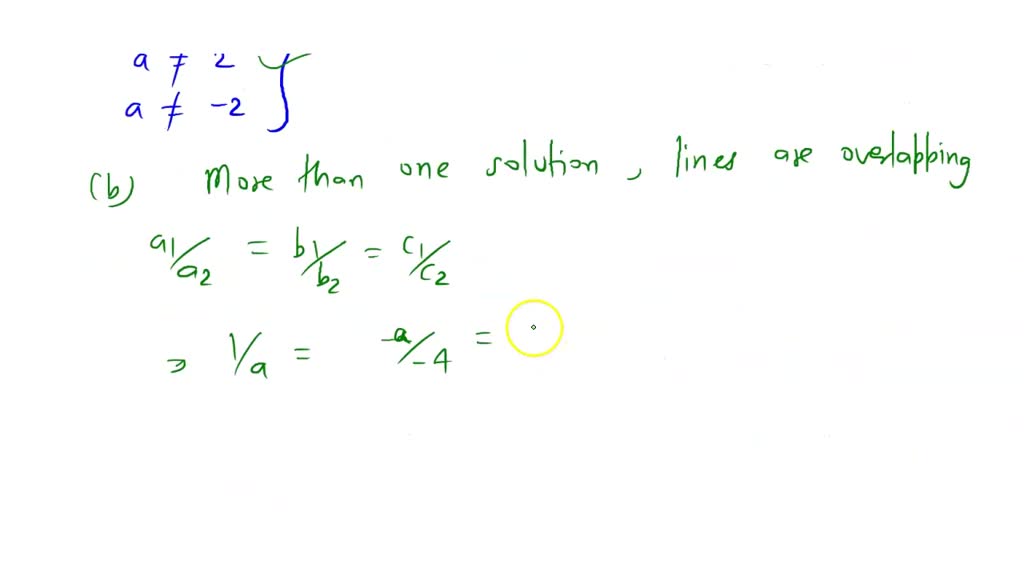 a ≠ 2
a ≠ -2
(b) More than one solution, lines are overlapping
a1/a2 = b1/b2 = c1/c2
⇒ 1/a = -a/-4 =